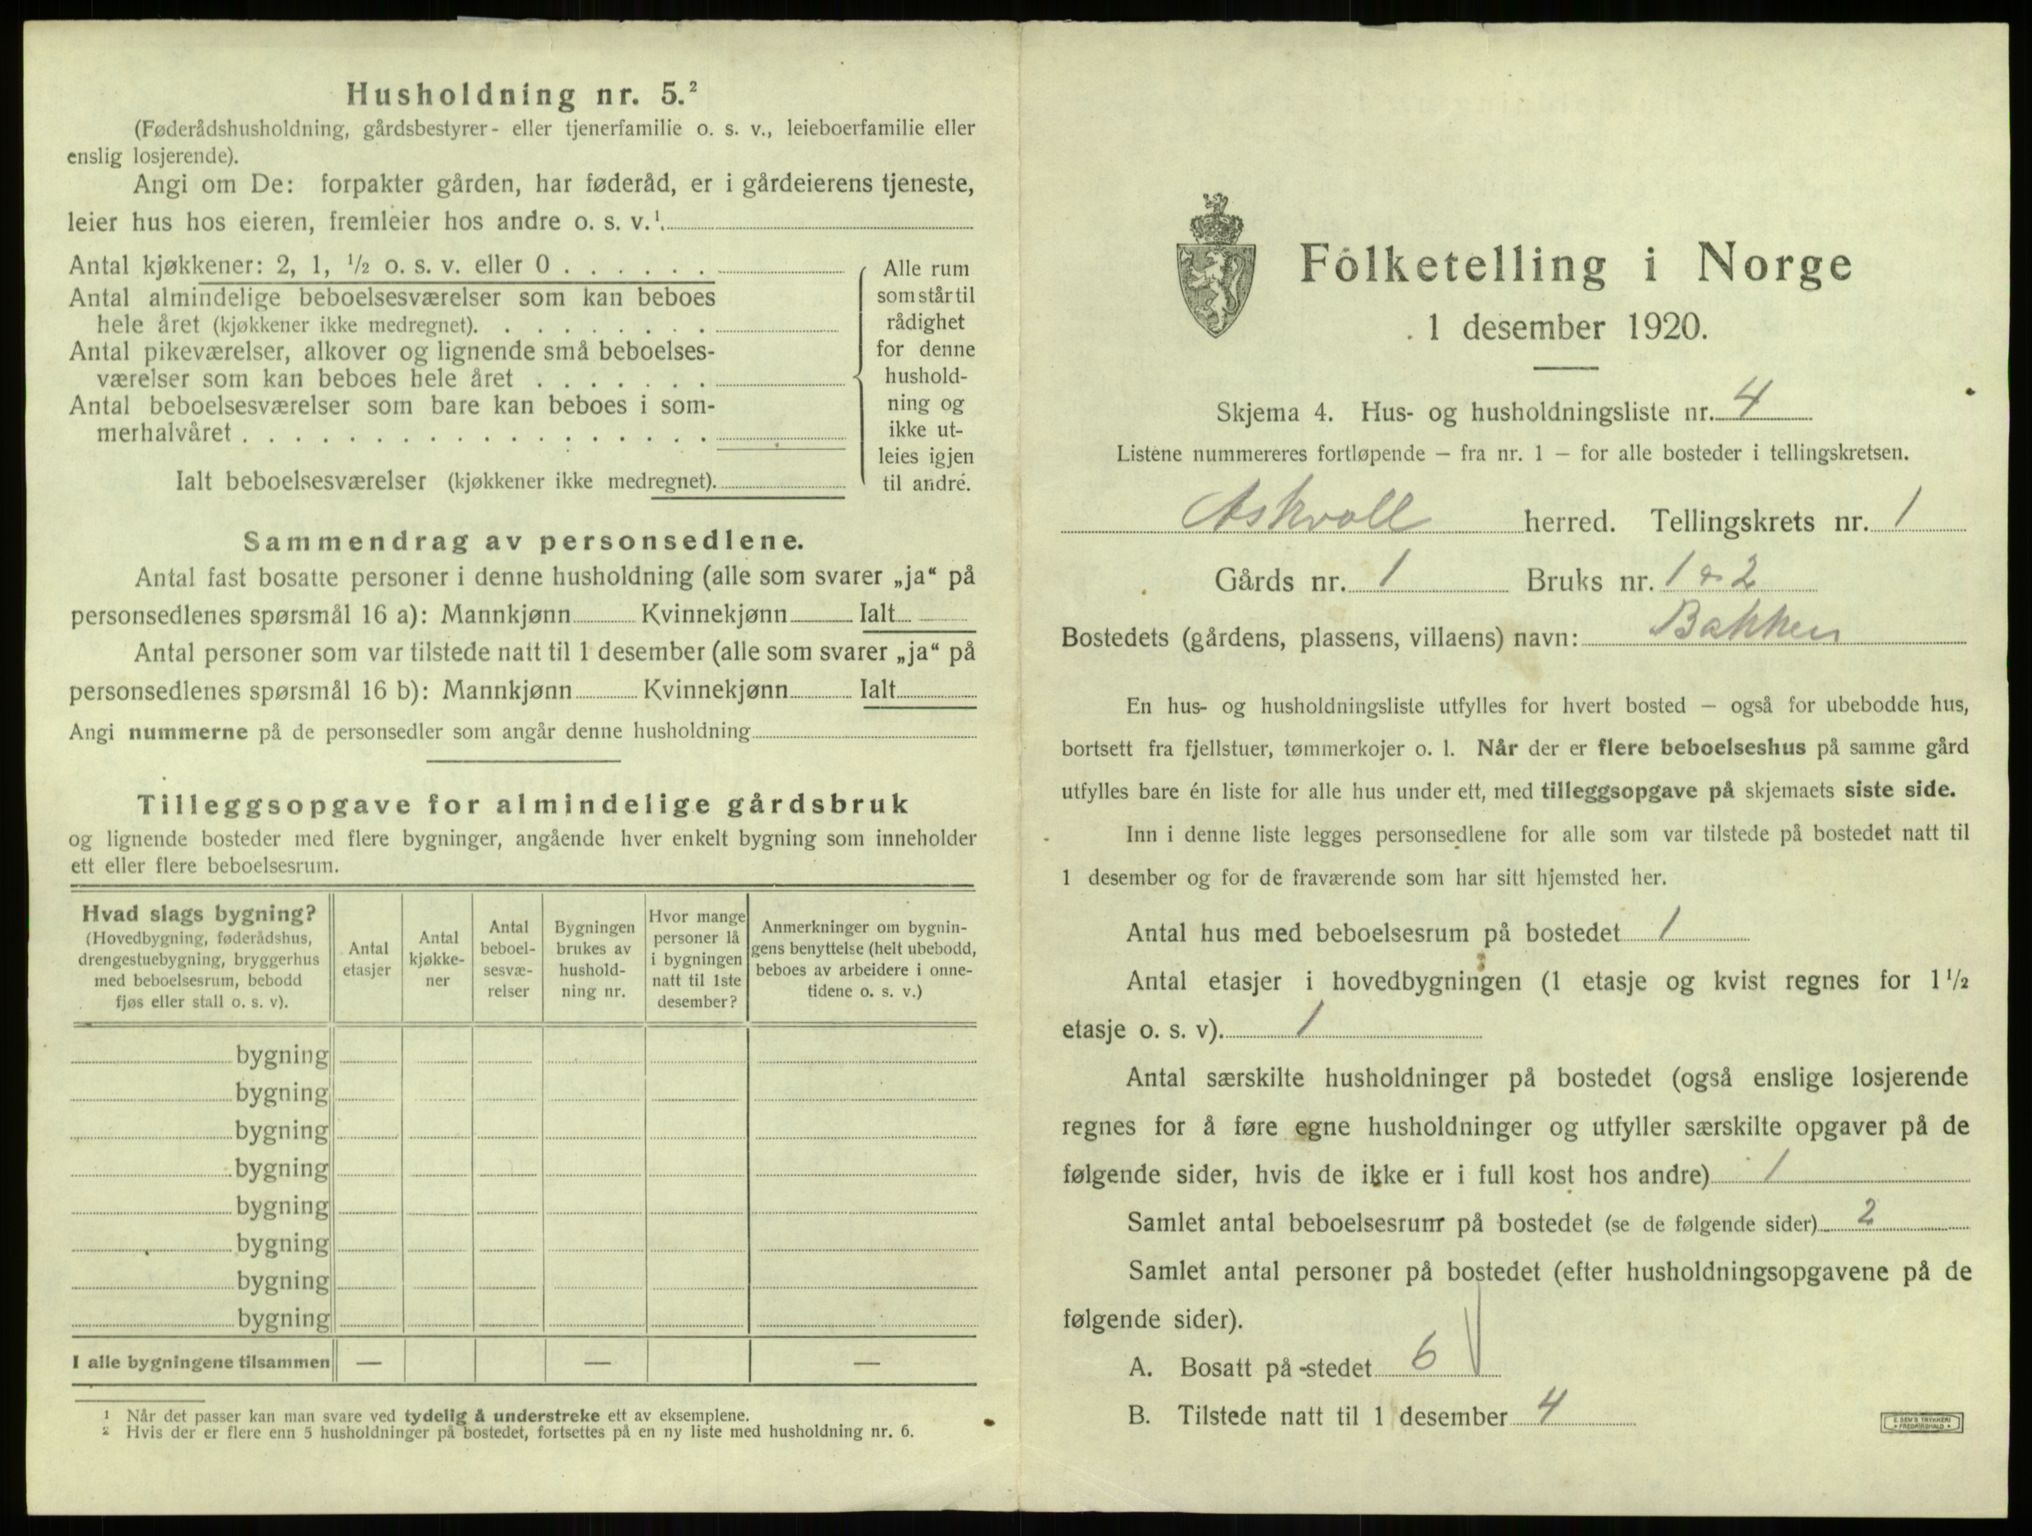 Husholdning nr. 5.²
(Føderådshusholdning, gårdsbestyrer- eller tjenerfamilie o. s. v., leieboerfamilie eller
enslig losjerende).
Angi om De: forpakter gården, har føderåd, er i gårdeierens tjeneste,
leier hus hos eieren, fremleier hos andre o. s. v.¹.
Antal kjøkkener: 2, 1, ½ o. s. v. eller 0 . . . . . .
Antal almindelige beboelsesværelser som kan beboes
hele året (kjøkkener ikke medregnet). . . . . . . . .
Antal pikeværelser, alkover og lignende små beboelses-
værelser som kan beboes hele året . . . . . . .
Antal beboelsesværelser som bare kan beboes i som-
merhalvåret . . . . . . . . . . . . . . . . . .
Ialt beboelsesværelser (kjøkkener ikke medregnet).
Alle rum
som står til
rådighet
for denne
hushold-
ning og
ikke ut-
leies igjen
til andre.
Sammendrag av personsedlene.
Antal fast bosatte personer i denne husholdning (alle som svarer „ja“ på
personsedlenes spørsmål 16 a): Mannkjønn Kvinnekjønn Ialt
Antal personer som var tilstede natt til 1 desember (alle som svarer „ja“ på
personsedlenes spørsmål 16 b): Mannkjønn Kvinnekjønn Ialt
Angi nummerne på de personsedler som angår denne husholdning
Tilleggsopgave for almindelige gårdsbruk
og lignende bosteder med flere bygninger, angående hver enkelt bygning som inneholder
ett eller flere beboelsesrum.
Hvad slags bygning?
(Hovedbygning, føderådshus,
drengestuebygning, bryggerhus
med beboelsesrum, bebodd
fjøs eller stall o. s. v).
Antal
etasjer
Antal
kjøkke-
ner
Antal
beboel-
sesvæ-
relser
Bygningen
brukes av
hushold-
ning nr.
Hvor mange
personer lå
i bygningen
natt til 1ste
desember?
Anmerkninger om bygnin-
gens benyttelse (helt ubebodd,
beboes av arbeidere i onne-
tidene o. s. v.)
bygning
bygning
bygning
bygning
bygning
bygning
bygning
bygning
I alle bygningene tilsammen — — —
¹ Når det passer kan man svare ved tydelig å understreke ett av eksemplene.
² Hvis der er flere enn 5 husholdninger på bostedet, fortsettes på en ny liste med husholdning nr. 6.
Folketelling i Norge
1 desember 1920.
Skjema 4. Hus- og husholdningsliste nr. 4
Listene nummereres fortløpende — fra nr. 1 — for alle bosteder i tellingskretsen.
Askvoll herred. Tellingskrets nr. 1
Gårds nr. 1 Bruks nr. 1 & 2
Bostedets (gårdens, plassens, villaens) navn: Bakken
En hus- og husholdningsliste utfylles for hvert bosted — også for ubebodde hus,
bortsett fra fjellstuer, tømmerkojer o. l. Når der er flere beboelseshus på samme gård
utfylles bare én liste for alle hus under ett, med tilleggsopgave på skjemaets siste side.
Inn i denne liste legges personsedlene for alle som var tilstede på bostedet natt til
1 desember og for de fraværende som har sitt hjemsted her.
Antal hus med beboelsesrum på bostedet 1
Antal etasjer i hovedbygningen (1 etasje og kvist regnes for 1½
etasje o. s. v). 1
Antal særskilte husholdninger på bostedet (også enslige losjerende
regnes for å føre egne husholdninger og utfyller særskilte opgaver på de
følgende sider, hvis de ikke er i full kost hos andre) 1
Samlet antal beboelsesrum på bostedet (se de følgende sider) 2
Samlet antal personer på bostedet (efter husholdningsopgavene på de
følgende sider).
A. Bosatt på stedet 6
B. Tilstede natt til 1 desember 4